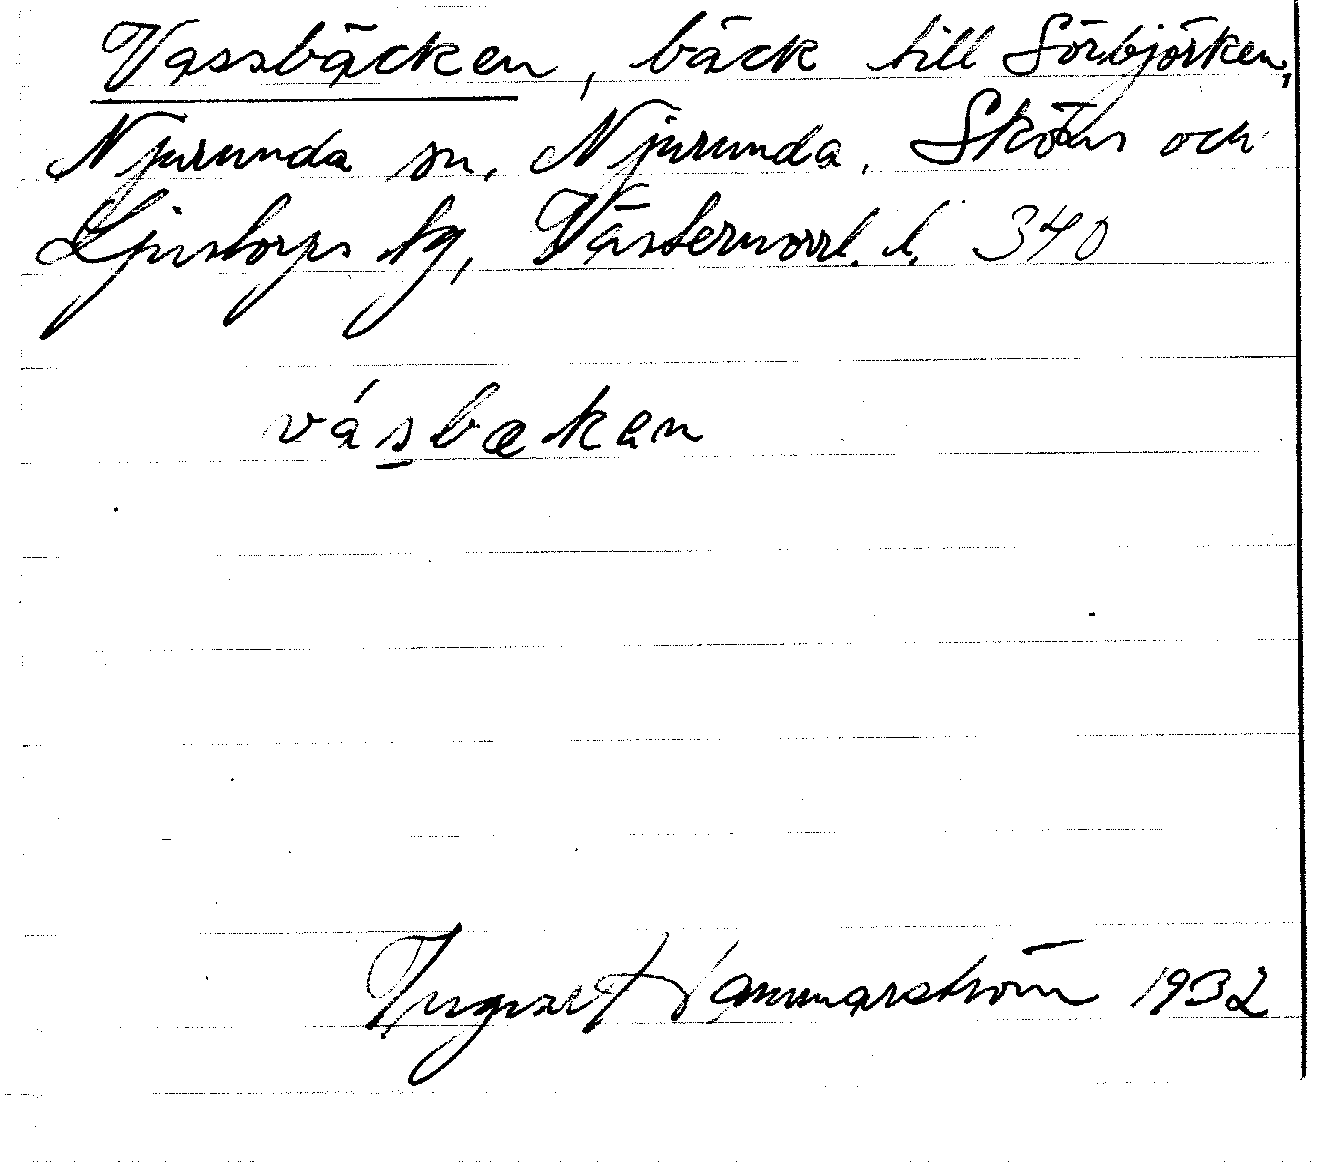 Vassbäcken, bäck till Sörbjörken,
Njurunda sn, Njurunda, Sköns och
Ljustorps tg, Västernorrl. l. 340
vásbækan
Ingvart Hammarström 1932